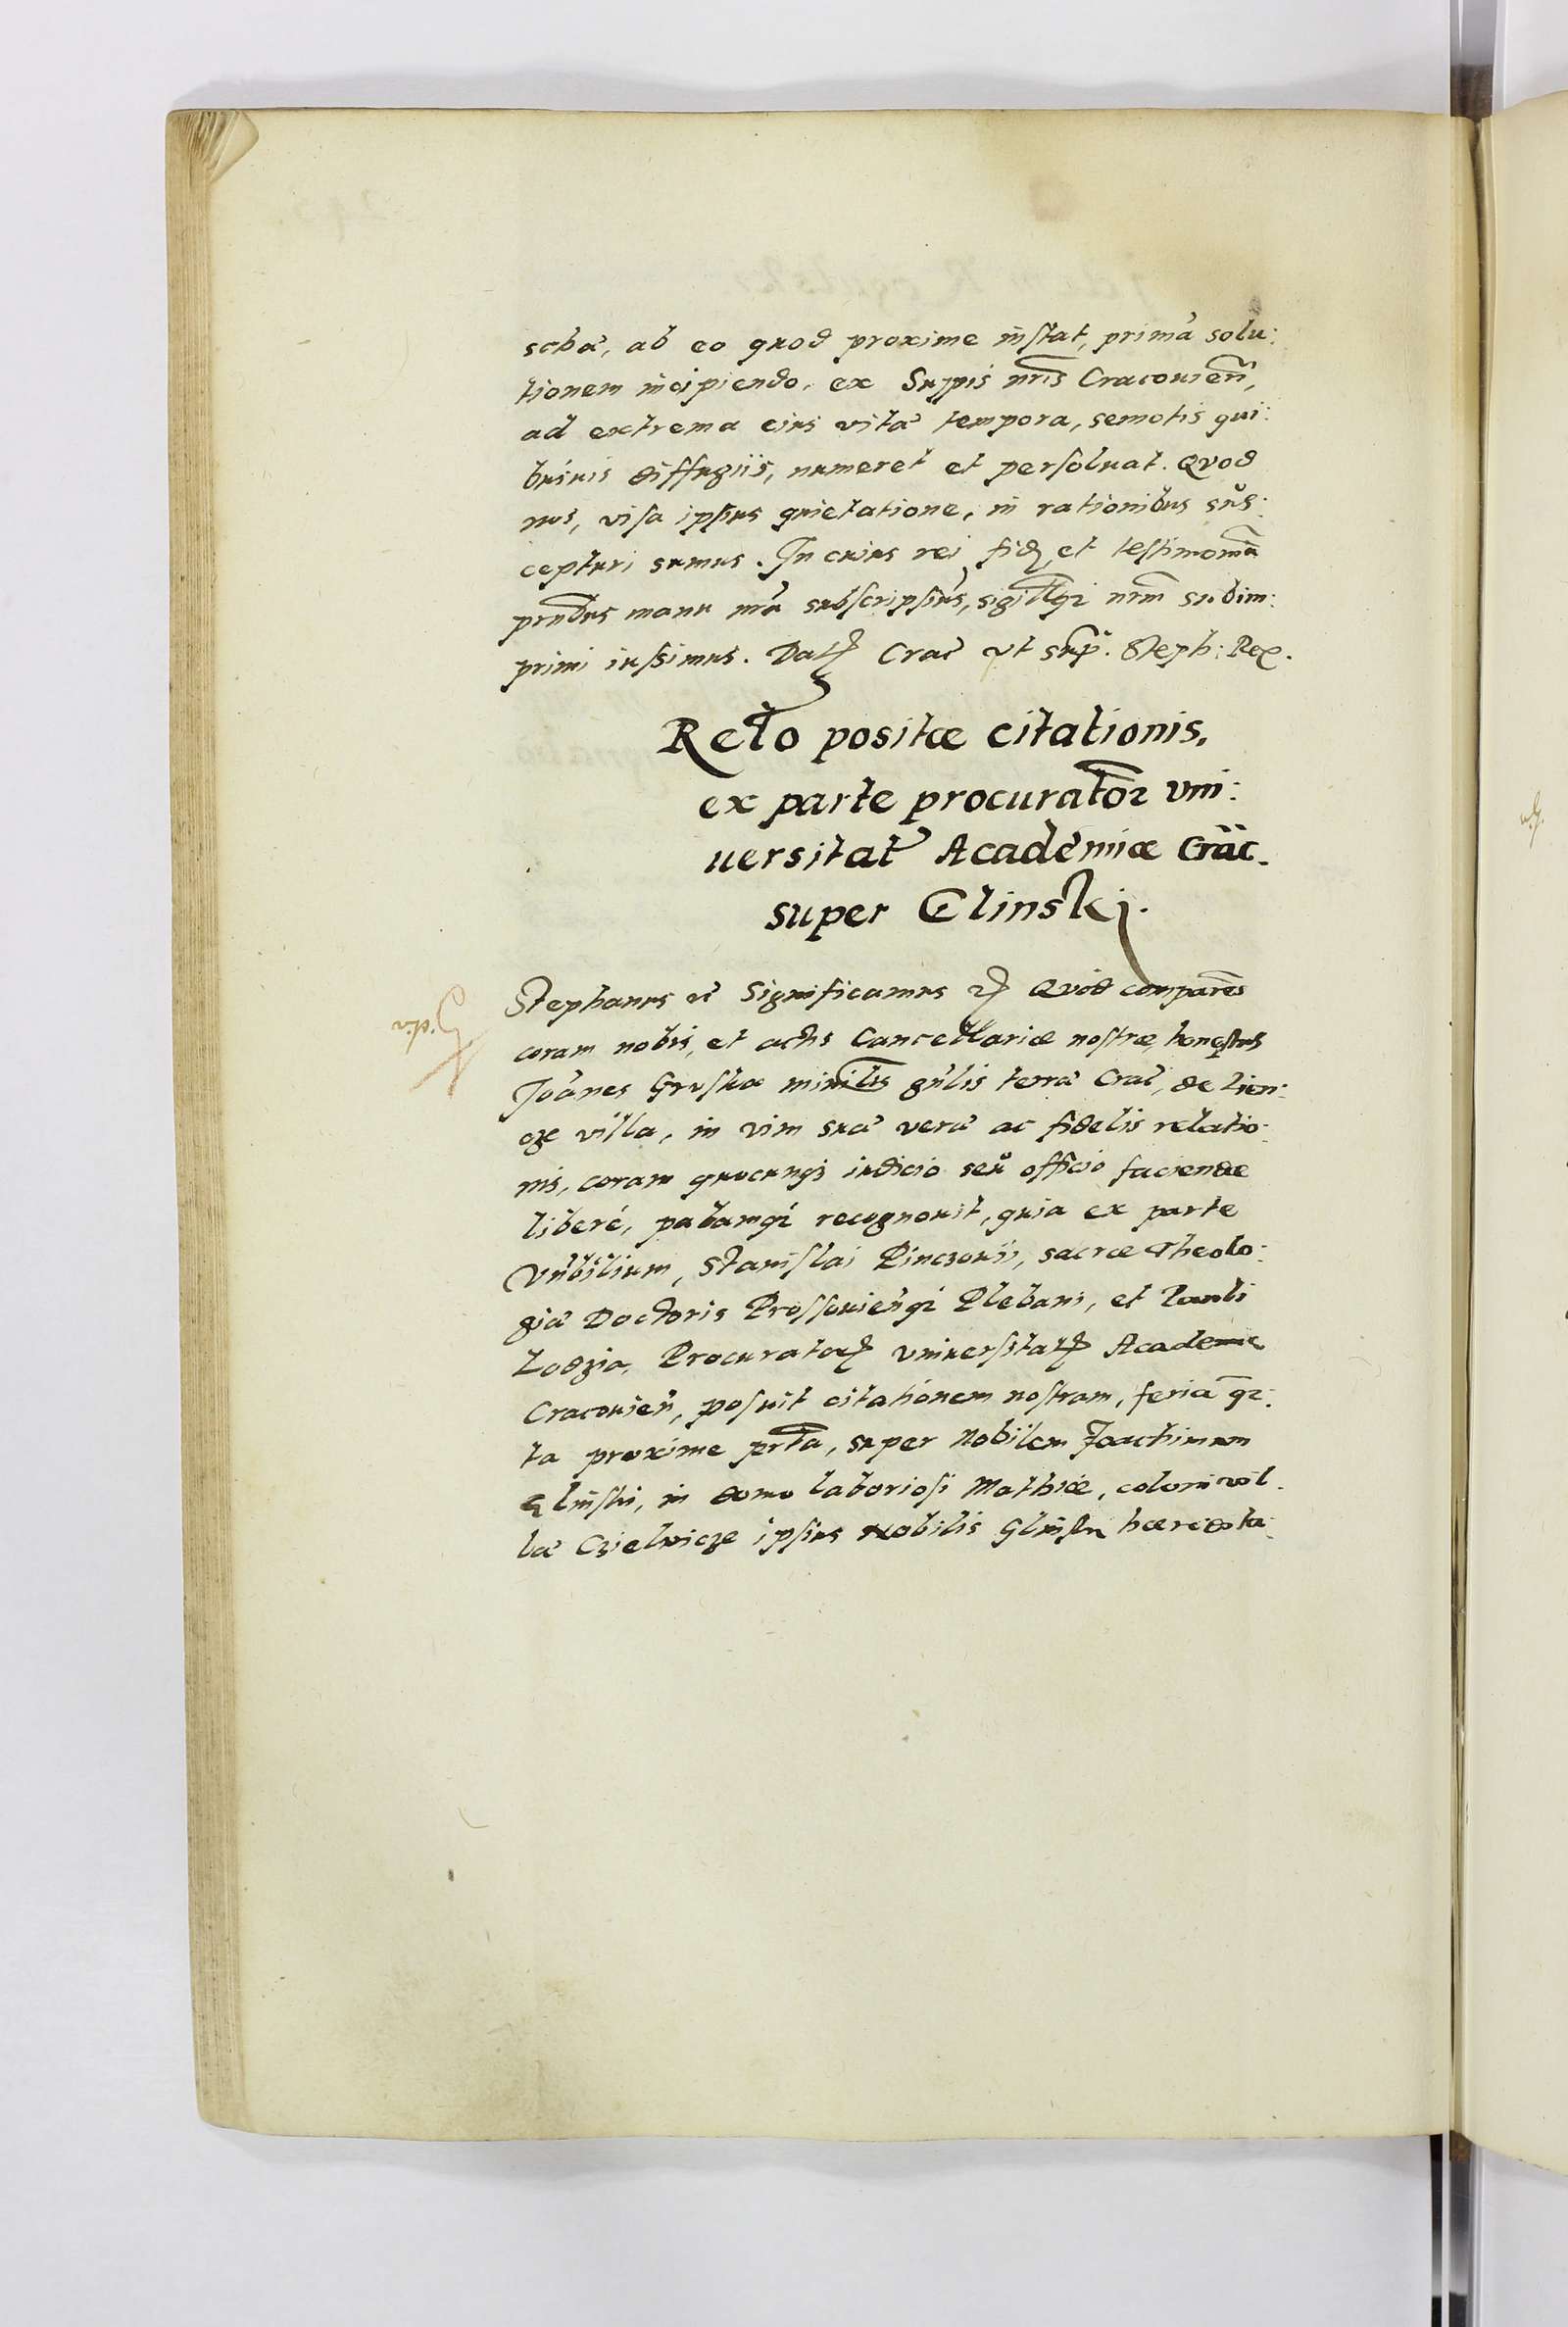 scha, ab eo quod proxime instat, primã solu:
tionem incipiendo, ex Suppis nr̃is Cracouieñ,
ad extrema eius vitæ tempora, semotis qui:
busuis diffugiis, numeret et persoluat. Quod
nos, visa ipsius quietatione, in rationibus sus:
cepturi sumus. In cuius rei fidẽ et testimoniũ
pñtibus manu nr̃a subscripsim̃us, sigillũq̃ nrm̃ subim:
primi iussimus. Dat Crac̃ vt sup̃. Steph: Rex.
Rel̃o positæ citationis,
ex parte procurator̃ vni:
uersitat̃ Academiæ Crac̃.
super Glinskj.
Stephanus et̃ Significamus Quod compareñs
coram nobis, et actis Cancellariæ nostræ, honestus
Joañes Gruska minil̃is gñlis terræ Crac̃, de
villa, in vim suæ veræ ac fidelis relatio:
nis, coram quocunq̃ iudicio seu officio faciendæ
liberè, palamq̃ recognouit, quia ex parte
Vñbilium, Stanislai Pinczouii, sacræ Theolo:
giæ Doctoris Prossouieñq̃ Plebani, et Pauli
Lodzia, Procurator̃ vniuersitat̃ Academiæ
Cracouieñ, posuit citationem nostram, feria q̃r:
ta proxime prt̃a, super Nobilem Joachimum
Glinski, in domo laboriosi Mathiæ, coloni vil:
læ ipsius Nobilis Glinski hæredita: